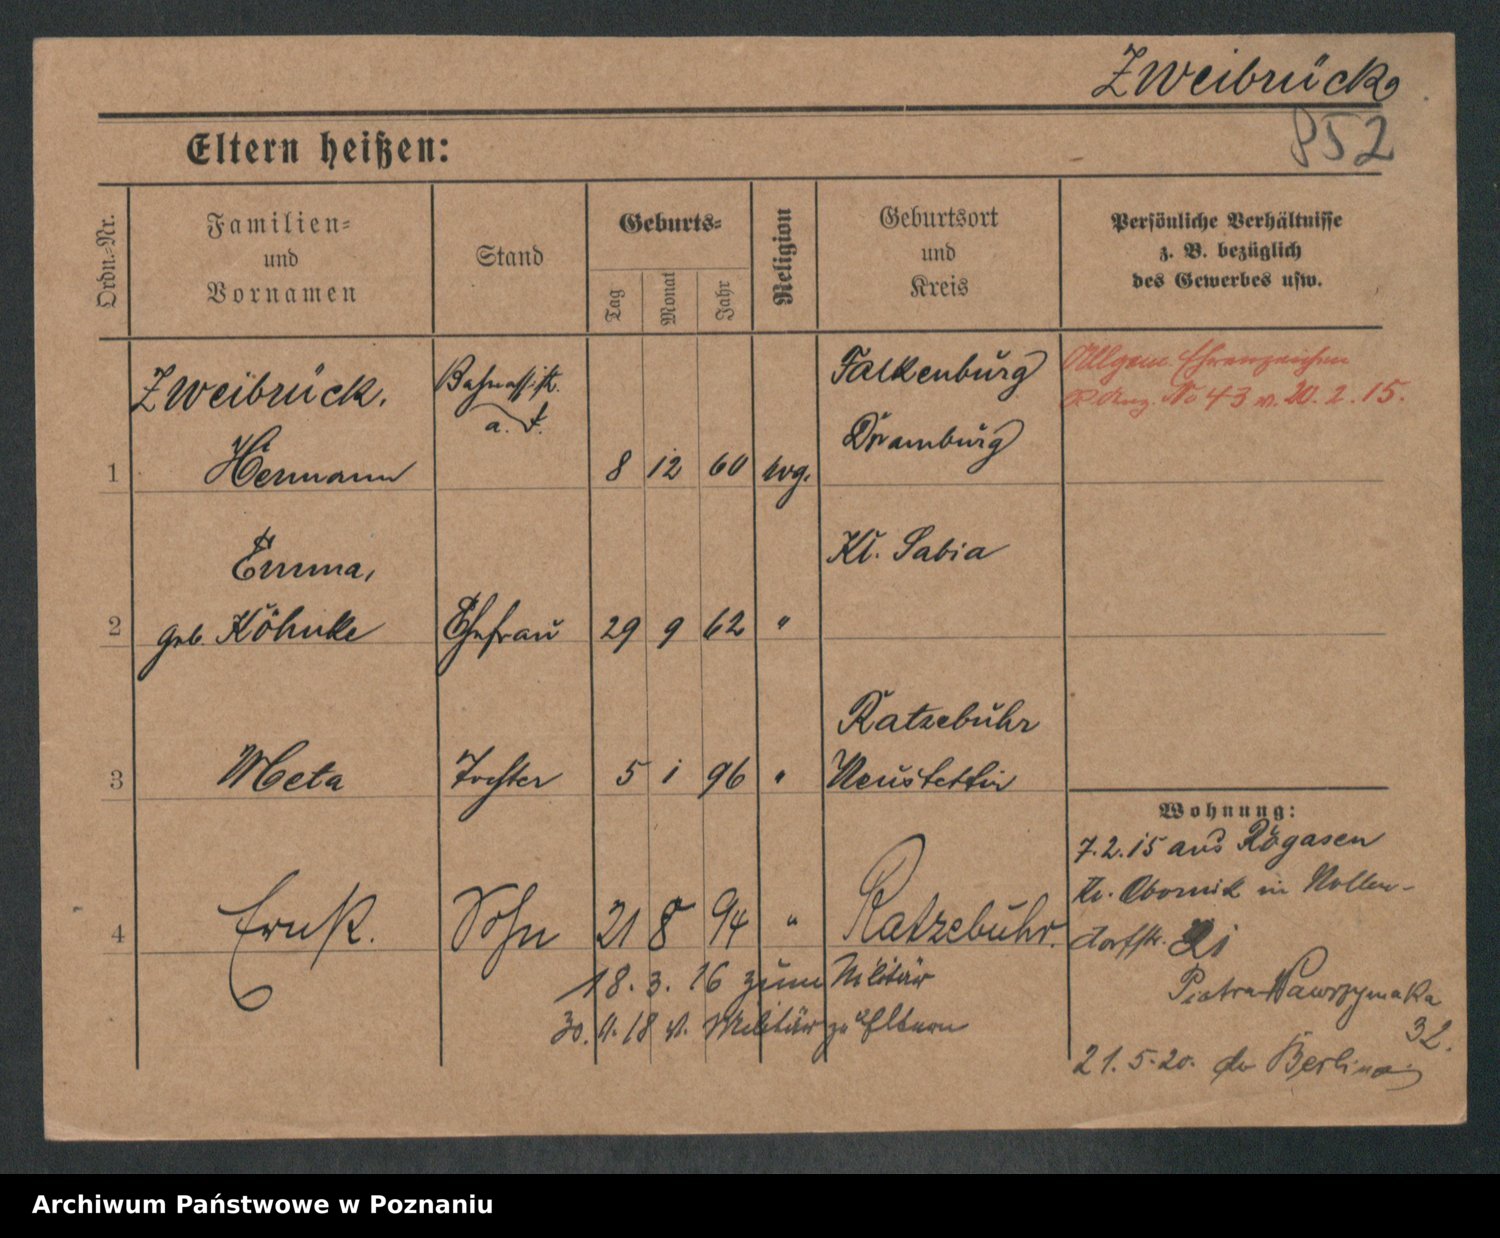 Zweibrück
852
Eltern heißen:
Ordn.-Nr.
Familien-
und
Vornamen
Stand
Geburts-
Tag
Monat
Jahr
Religion
Geburtsort
und
Kreis
Persönliche Verhältnisse
z. B. bezüglich
des Gewerbes usw.
Zweibrück. Bahnassist. Falkenburg Allgem. Ehrenzeichen
a. D. No 43 v. 20. 2. 15.
1 Hermann 8 12 60 evg. Dramburg
Emma, Kl. Sabia
2 geb. Köhnke Ehefrau 29 9 62 "
Ratzebuhr
3 Meta Tochter 5 1 96 " Neustettin
Wohnung:
7.2.15 aus Rogasen
Kr. Obornik in Nollen-
4 Ernst. Sohn 21 8 94 " Ratzebuhr.
dorfstr. 21
18. 3. 16 zum Militär
Piotra Wawrzyniaka
30. 11. 18 v. Militär zu Eltern
32.
21. 5. 20. Berlin
Archiwum Państwowe w Poznaniu